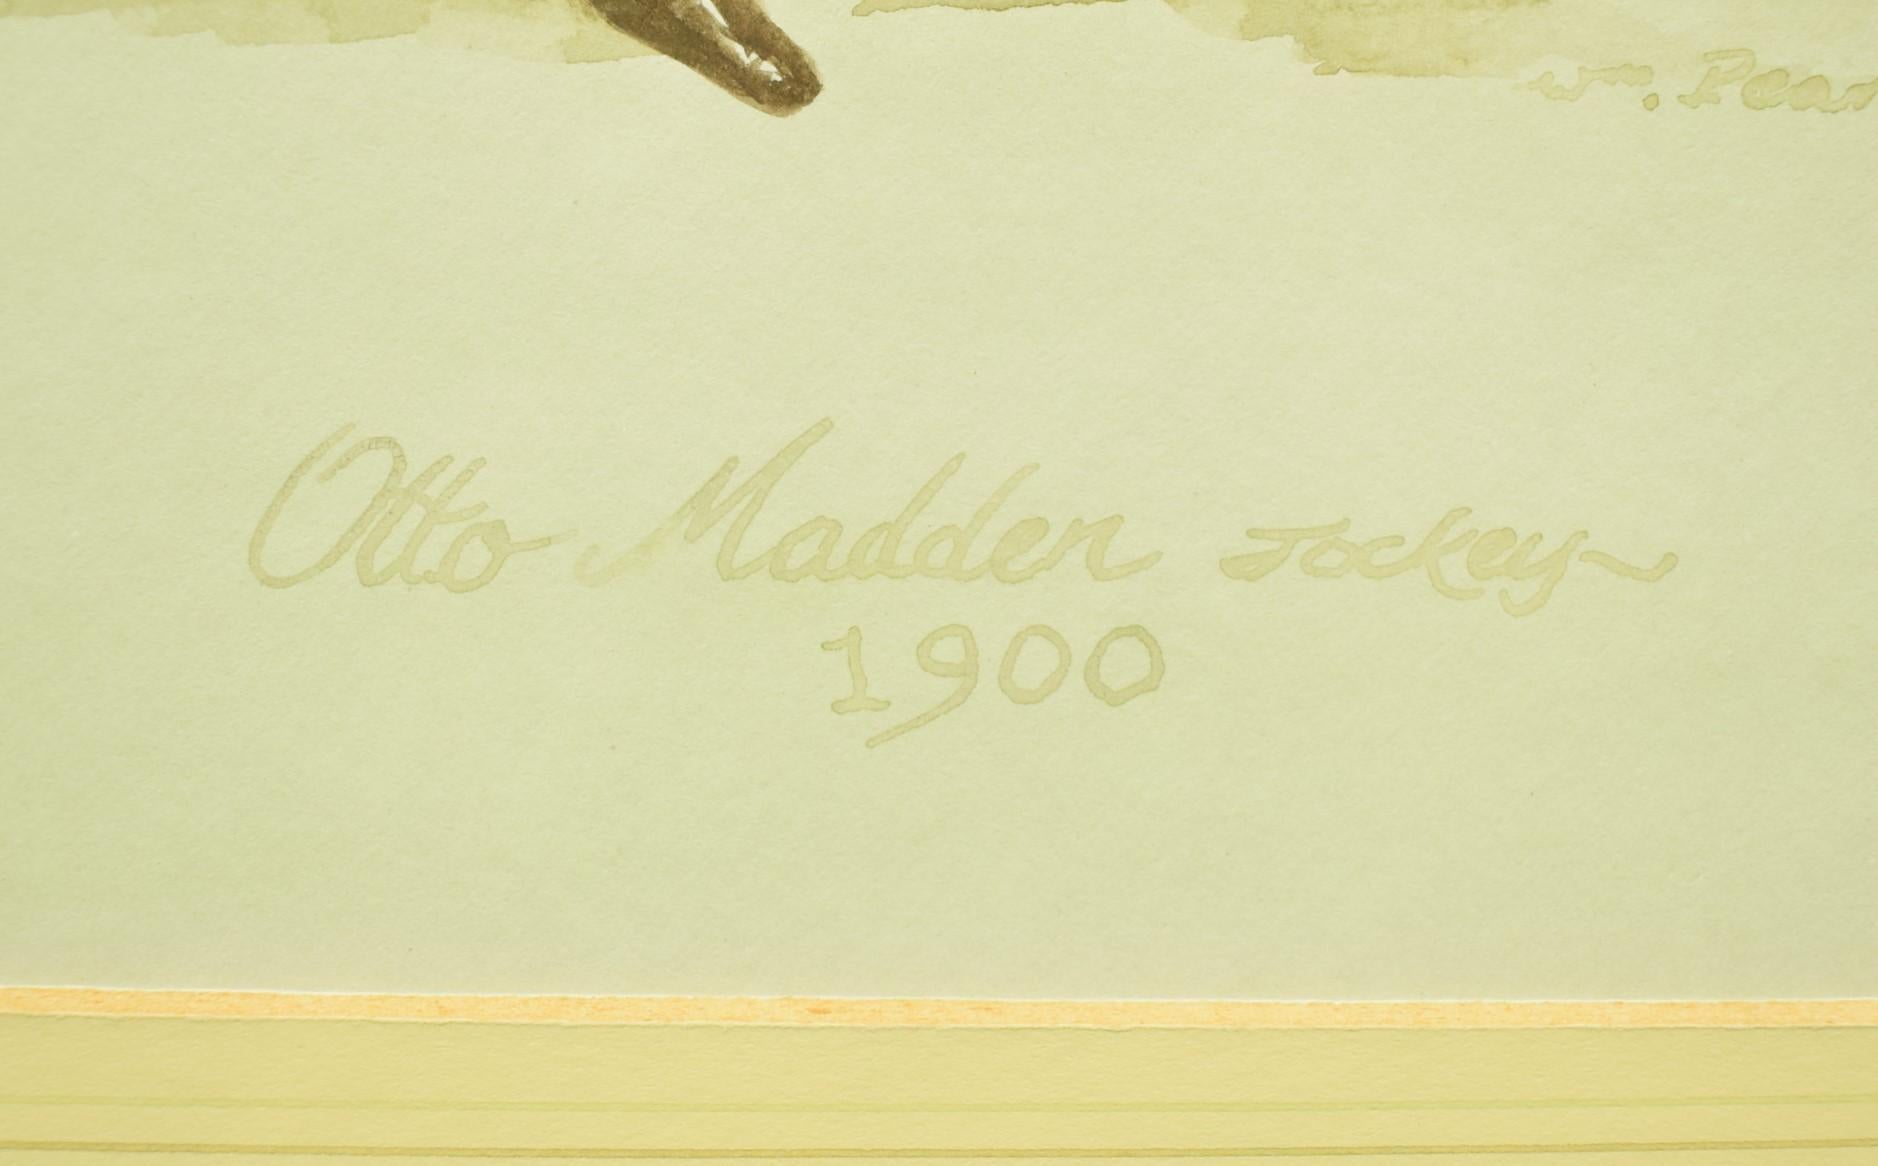 wm. Pear
Otto Madden Jockey
1900